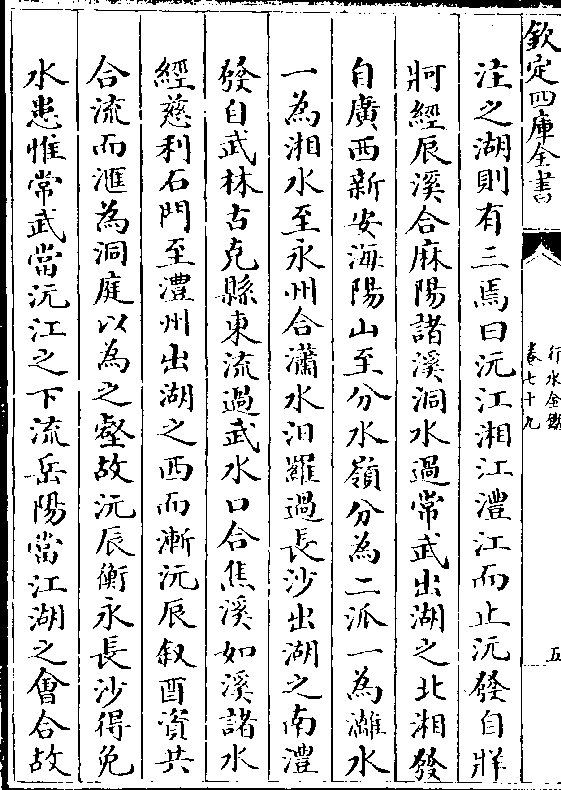 欽定四庫全書
行水金鑑
卷七十九
五
注之湖則有三焉曰沅江湘江澧江而止沅發自牂
牁經辰溪合麻陽諸溪洞水過常武出湖之北湘發
自廣西新安海陽山至分水嶺分為二派一為灕水
一為湘水至永州合瀟水汨羅過長沙出湖之南澧
發自武林古克縣東流過武水口合焦溪如溪諸水
經慈利石門至澧州出湖之西而漸沅辰叙酉資共
合流而滙為洞庭以為之壑故沅辰衡永長沙得免
水患惟常武當沅江之下流岳陽當江湖之會合故